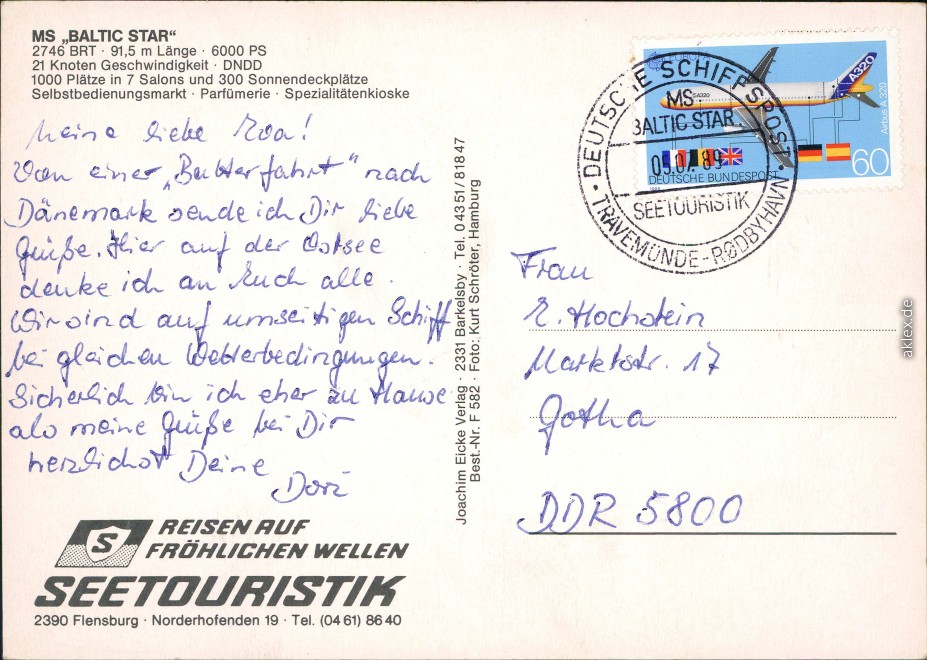 MS „BALTIC STAR“
2746 BRT · 91,5 m Länge · 6000 PS
21 Knoten Geschwindigkeit · DNDD
1000 Plätze in 7 Salons und 300 Sonnendeckplätze
Selbstbedienungsmarkt · Parfümerie · Spezialitätenkioske
Meine liebe Eva!
Von einer „Butterfahrt“ nach
Dänemark sende ich Dir liebe
Grüße. Hier auf der Ostsee
denke ich an Euch alle.
Wir sind auf umseitigen Schiff
bei gleichen Wetterbedingungen.
Sicherlich bin ich eher zu Hause
als meine Grüße bei Dir
herzlichst Deine
REISEN AUF
FRÖHLICHEN WELLEN
S
SEETOURISTIK
2390 Flensburg · Norderhofenden 19 · Tel. (04 61) 86 40
Joachim Eicke Verlag · 2331 Barkelsby · Tel. 0 43 51 / 8 18 47
Best.-Nr. F 582 · Foto: Kurt Schröter, Hamburg
DEUTSCHE SCHIFFSPOST
MS
BALTIC STAR
05.07.89
SEETOURISTIK
TRAVEMÜNDE-RØDBYHAVN
A320
Airbus A 320
60
DEUTSCHE BUNDESPOST
Frau
E. Hochstein
Marktstr. 17
Gotha
DDR 5800
aklex.de